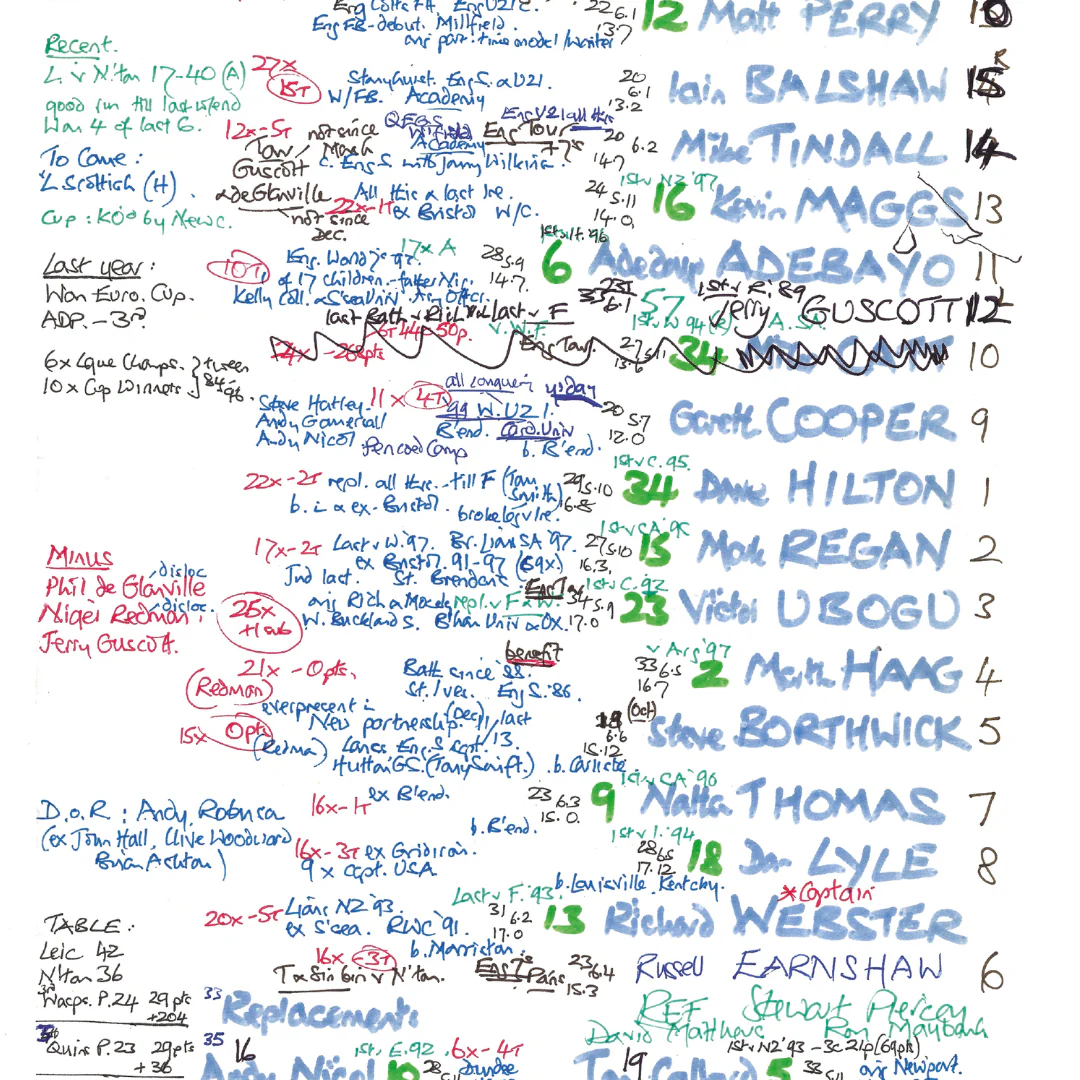 Eng Colts F4. Eng U21C. 22 6.1 12 Matt PERRY 10
Eng FB-debut. Millfield. 13.7
avr part-time model/writer
Recent.
L. v N'ton 17-40 (A) 27x 15T Stonyhurst. Eng S. & U21 20 6.1 13.2 Iain BALSHAW 15 R
W/FB. Academy
good run till last w/end
Won 4 of last 6.
12x-5T not since QEGS Wkfield Eng Tour 20 6.2 14.7 Mike TINDALL 14
Eng U21 all this
Academy +7s
To Come: Tour/ March
Guscott c. Eng S. with Jonny Wilkinson.
L Scottish (H) & de Glanville All this & last
1st v NZ '97
22x-1T ex Bristol W/C. 24 5.11 14.0 16 Kevin MAGGS 13
not since Dec.
Cup: KO'd by Newc.
1st v It. '96
Last year: 10T 17x A 28 5.9 14.7. 6 Adedayo ADEBAYO 11
Won Euro. Cup. of 17 children. father Nig.
Kelly Coll. & S'sea Univ. Army Officer.
ADP. - 3rd.
last Bath v Rich & last v F 33 6.1 57 1st v R. 89 Jerry GUSCOTT 12
44 50p. v. W.F. 1st v W 94 A. SA
Eng Tour. 27 34 10
6x Lgue Champs. } tween
10x Cup Winners. } 84 96.
all conquering ysday
Steve Hatley. 11x 4T 99 W. U21. 20 5.7 12.0 Gareth COOPER 9
Andy Gomersall B'end. Card. Univ
Andy Nicol Pencoed Comp b. B'end.
1st v C. 95.
22x-2T repl. all this.. till F (Tom Smith) 29 5.10 16.8 34 Dave HILTON 1
b. i & ex-Bristol. broke leg v Ire.
1st v CA '95
17x-2T Last v W.'97. Br. Lions SA '97. 27 5.10 16.3, 15 Mark REGAN 2
ex Bristol 91-97 (69x)
Jnd last. St. Brendans Eng Tour
MINUS
Phil de Glanville disloc
Nigel Redman. disloc.
Jerry Guscott.
1st v C. 92
25x +1 sub avr Rich & Mocals repl. v F & W. 34 5.9 17.0 23 Victor UBOGU 3
W. Buckland S. B'ham Univ & OX.
benefit v Arg '97
21x - 0pts. Bath since '88. 33 6.5 16.7 2 Martin HAAG 4
(Redman) St. Ives. Eng S. '86.
everpresent i
15x 0pts New partnership. (Dec) 11/ last 13. (Oct) 6.6 15.12 Steve BORTHWICK 5
(Redman) Lancs Eng. S. Capt.
Hutton GS. (Tony Swift.) b. Carlisle
1st v CA '96
D.o.R: Andy Robinson 16x-1T ex B'end. 23 6.3 15.0. 9 Nathan THOMAS 7
(ex John Hall, Clive Woodward b. B'end.
Brian Ashton)
1st v I. '94
16x-3T ex Gridiron. 28 6.5 17.12 18 Dan LYLE 8
9x Capt. USA b. Louisville, Kentucky.
*Captain
Last v F. '93.
20x-5T Lions NZ '93. 31 6.2 17.0 13 Richard WEBSTER
ex S'sea. RWC '91. b. Morriston.
TABLE:
Leic 42 16x -3T Eng 7s Paris 23 6.4 15.3 Russell EARNSHAW 6
N'ton 36 T & Sin bin v N'ton.
3rd Wasps. P.24 29 pts +204
33 Replacements REF Stewart Piercey
David Matthews Ron Maybank
Quins P.23 29pts +36
35 16 Andy Nicol 10 1st v E. 92 6x-4T 28 Dundee
19 5 1st v NZ '93 - 3c 21p (69pts) 33 avr Newport.